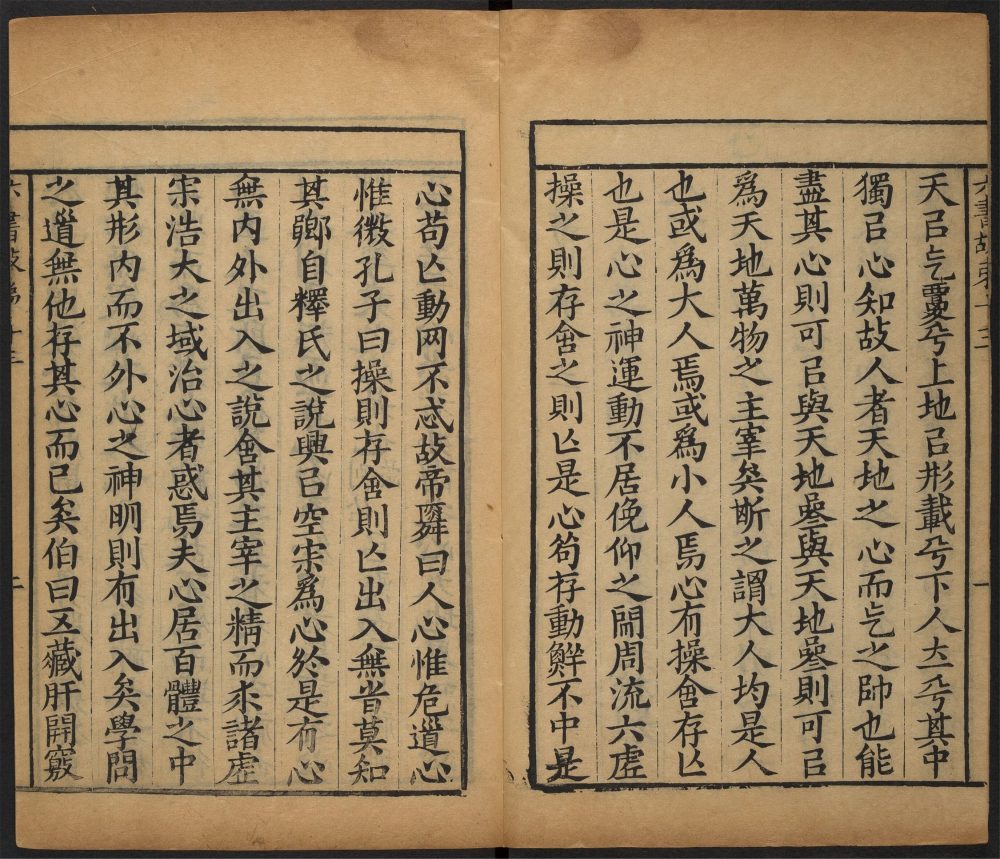 六書故弟十三
天㠯气覆乎上地㠯形載乎下人大乎其中
獨㠯心知故人者天地之心而气之帥也能
盡其心則可㠯與天地參與天地參則可㠯
爲天地萬物之主宰矣斯之謂大人均是人
也或爲大人焉或爲小人焉心有操舍存亾
也是心之神運動不居俛仰之閒周流六虛
操之則存舍之則亾是心茍存動鮮不中是
一
心茍亾動网不忒故帝舜曰人心惟危道心
惟微孔子曰操則存舍則亾出入無旹莫知
其鄉自釋氏之說興㠯空宗爲心於是有心
無内外出入之說舍其主宰之精而求諸虛
宗浩大之域治心者惑焉夫心居百體之中
其形内而不外心之神明則有出入矣學問
之道無他存其心而已矣伯曰五藏肝開竅
二